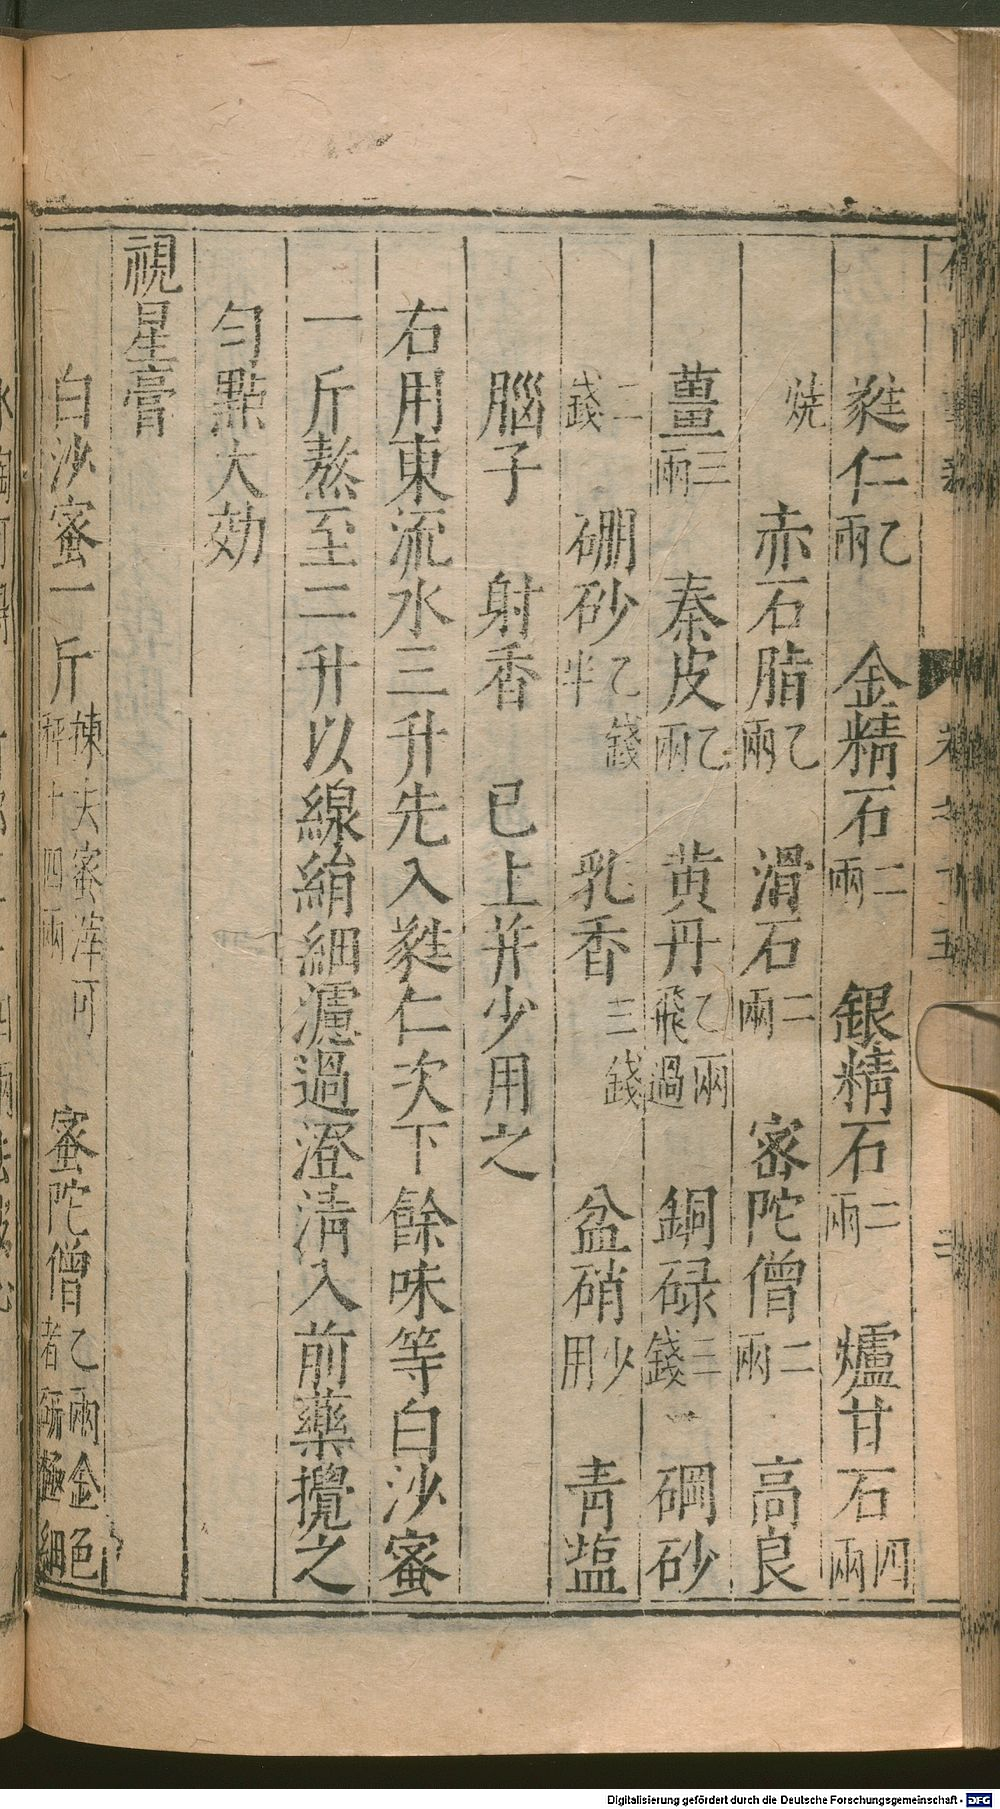 蕤仁乙兩　金精石二兩　銀精石二兩　爐甘石四兩
燒　赤石脂乙兩　滑石二兩　密陀僧二兩　高良
薑三兩　秦皮乙兩　黄丹乙兩飛過　銅碌三錢　硇砂
二錢　硼砂乙錢半　乳香三錢　盆硝少用　青塩
腦子　射香　已上并少用之
右用東流水三升先入蕤仁次下餘味等白沙蜜
一斤熬至二升以線絹細濾過澄淸入前藥攪之
匀點大効
視星膏
白沙蜜一斤揀去蜜滓可秤十四兩　蜜陀僧乙兩金色者硏極細
Digitalisierung gefördert durch die Deutsche Forschungsgemeinschaft - DFG